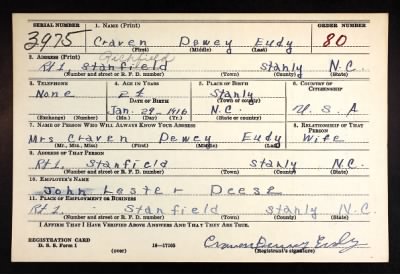 SERIAL NUMBER 1. NAME (Print) ORDER NUMBER
3975 Craven Dewey Eudy 80
(First) (Middle) (Last)
Richfield
2. ADDRESS (Print)
Rt 1, Stanfield Stanly N.C.
(Number and street or R. F. D. number) (Town) (County) (State)
3. TELEPHONE 4. AGE IN YEARS 5. PLACE OF BIRTH 6. COUNTRY OF CITIZENSHIP
None 24 Stanly
DATE OF BIRTH (Town or county)
Jan. 29 1916 N.C. U.S.A
(Exchange) (Number) (Mo.) (Day) (Yr.) (State or country)
7. NAME OF PERSON WHO WILL ALWAYS KNOW YOUR ADDRESS 8. RELATIONSHIP OF THAT PERSON
Mrs Craven Dewey Eudy Wife
(Mr., Mrs., Miss) (First) (Middle) (Last)
9. ADDRESS OF THAT PERSON
Rt 1, Stanfield Stanly N.C.
(Number and street or R. F. D. number) (Town) (County) (State)
10. EMPLOYER'S NAME
John Lester Deese
11. PLACE OF EMPLOYMENT OR BUSINESS
Rt 1. Stanfield Stanly N.C.
(Number and street or R. F. D. number) (Town) (County) (State)
I AFFIRM THAT I HAVE VERIFIED ABOVE ANSWERS AND THAT THEY ARE TRUE.
REGISTRATION CARD
D. S. S. Form 1 16—17105 Craven Dewey Eudy
(over) (Registrant's signature)